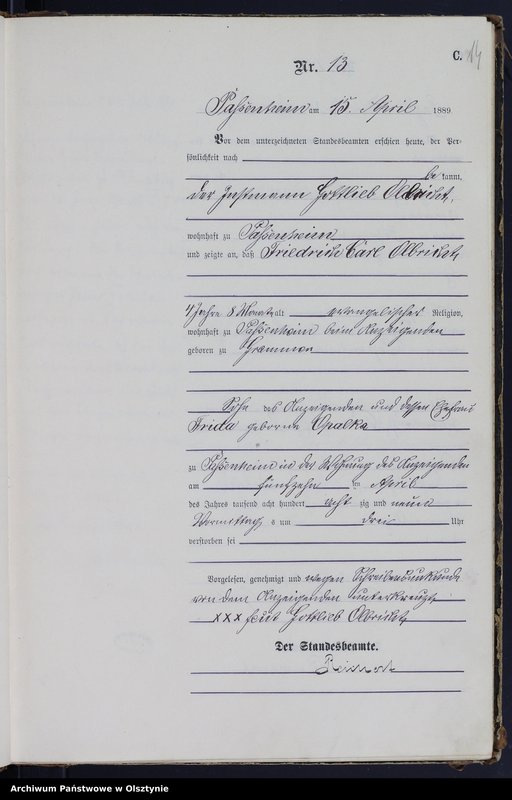 C.
14
Nr. 13
Passenheim am 15. April 1889
Vor dem unterzeichneten Standesbeamten erschien heute, der Per-
sönlichkeit nach
be kannt,
der Instmann Gottlieb Olbricht,
wohnhaft zu Passenheim
und zeigte an, daß Friedrich Carl Olbricht,
4 Jahre 8 Monate alt evangelischer Religion,
wohnhaft zu Passenheim beim Anzeigenden
geboren zu
Sohn des Anzeigenden und dessen Ehefrau
geborne Opalka
zu Passenheim in der Wohnung des Anzeigenden
am fünfzehn ten April
des Jahres tausend acht hundert acht zig und neun
Vormittag s um drei Uhr
verstorben sei
Vorgelesen, genehmigt und wegen Schreibensunkunde
von dem Anzeigenden unterkreuzt
xxx Gottlieb Olbricht
Der Standesbeamte.
Archiwum Państwowe w Olsztynie